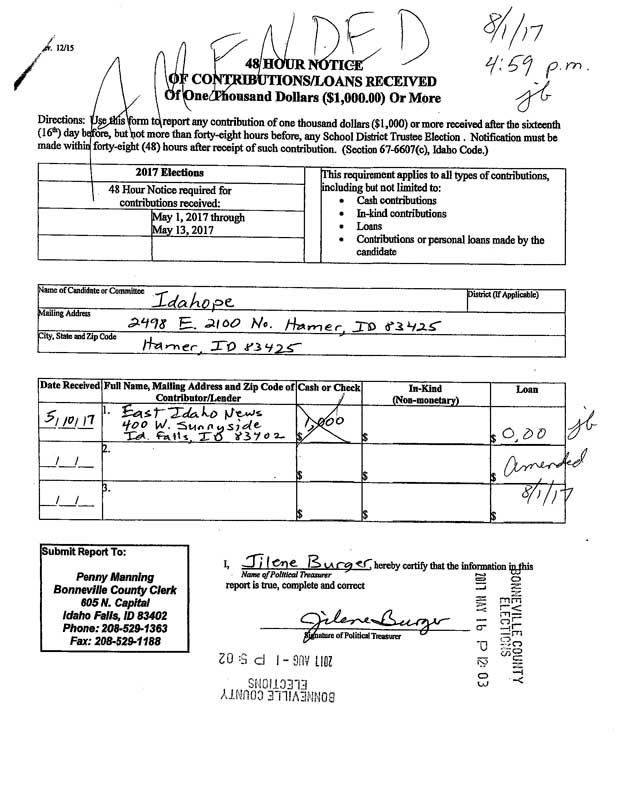 AMENDED
8/1/17
4:59 p.m.
jb
rev. 12/15
48 HOUR NOTICE
OF CONTRIBUTIONS/LOANS RECEIVED
Of One Thousand Dollars ($1,000.00) Or More
Directions: Use this form to report any contribution of one thousand dollars ($1,000) or more received after the sixteenth
(16th) day before, but not more than forty-eight hours before, any School District Trustee Election . Notification must be
made within forty-eight (48) hours after receipt of such contribution. (Section 67-6607(c), Idaho Code.)
2017 Elections
48 Hour Notice required for
contributions received:
May 1, 2017 through
May 13, 2017
This requirement applies to all types of contributions,
including but not limited to:
• Cash contributions
• In-kind contributions
• Loans
• Contributions or personal loans made by the
candidate
Name of Candidate or Committee Idahope District (If Applicable)
Mailing Address 2498 E. 2100 No. Hamer, ID 83425
City, State and Zip Code Hamer, ID 83425
Date Received Full Name, Mailing Address and Zip Code of Contributor/Lender Cash or Check In-Kind (Non-monetary) Loan
5/10/17 1. East Idaho News 1,000
400 W. Sunnyside
Id. Falls, ID 83402 $ $ $ 0.00 jb
_/_/_ 2. $ $ $ Amended
_/_/_ 3. $ $ $ 8/1/17
Submit Report To:
Penny Manning
Bonneville County Clerk
605 N. Capital
Idaho Falls, ID 83402
Phone: 208-529-1363
Fax: 208-529-1188
I, Jilene Burger, hereby certify that the information in this
Name of Political Treasurer
report is true, complete and correct
Jilene Burger
Signature of Political Treasurer
BONNEVILLE COUNTY
ELECTIONS
2017 MAY 16 P 12 03
BONNEVILLE COUNTY
ELECTIONS
2017 AUG -1 P 5:02